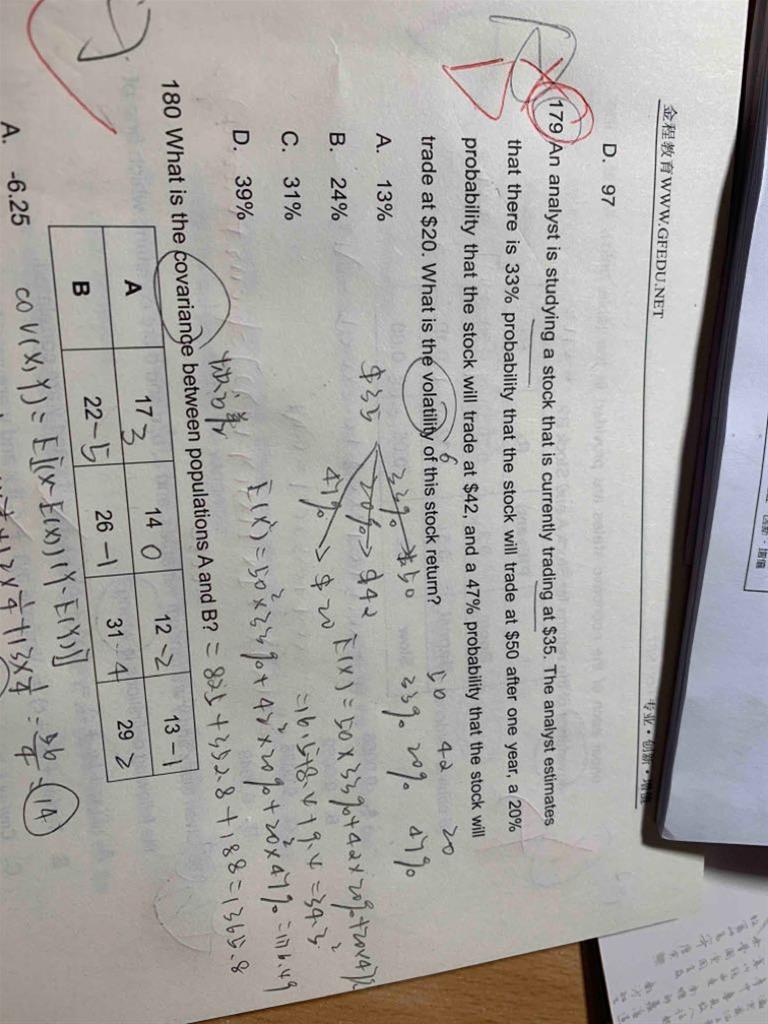 金程教育WWW.GFEDU.NET
专业·创新·增值
D. 97
179 An analyst is studying a stock that is currently trading at $35. The analyst estimates
that there is 33% probability that the stock will trade at $50 after one year, a 20%
probability that the stock will trade at $42, and a 47% probability that the stock will
trade at $20. What is the volatility of this stock return?
6
50 42 20
33% 20% 47%
A. 13%
B. 24%
C. 31%
D. 39%
$35
33% $50
20% $42
47% $20
E(X)=50×33%+42×20%+20×47%
=16.5+8.4+9.4=34.3
E(X²)=50²×33%+42²×20%+20²×47%=1176.49
=825+352.8+188=1365.8
180 What is the covariance between populations A and B?
A 17 3 14 0 12 -2 13 -1
B 22 -5 26 -1 31 4 29 2
A. -6.25
COV(X,Y)=E[(X-E(X))(Y-E(Y))]
14